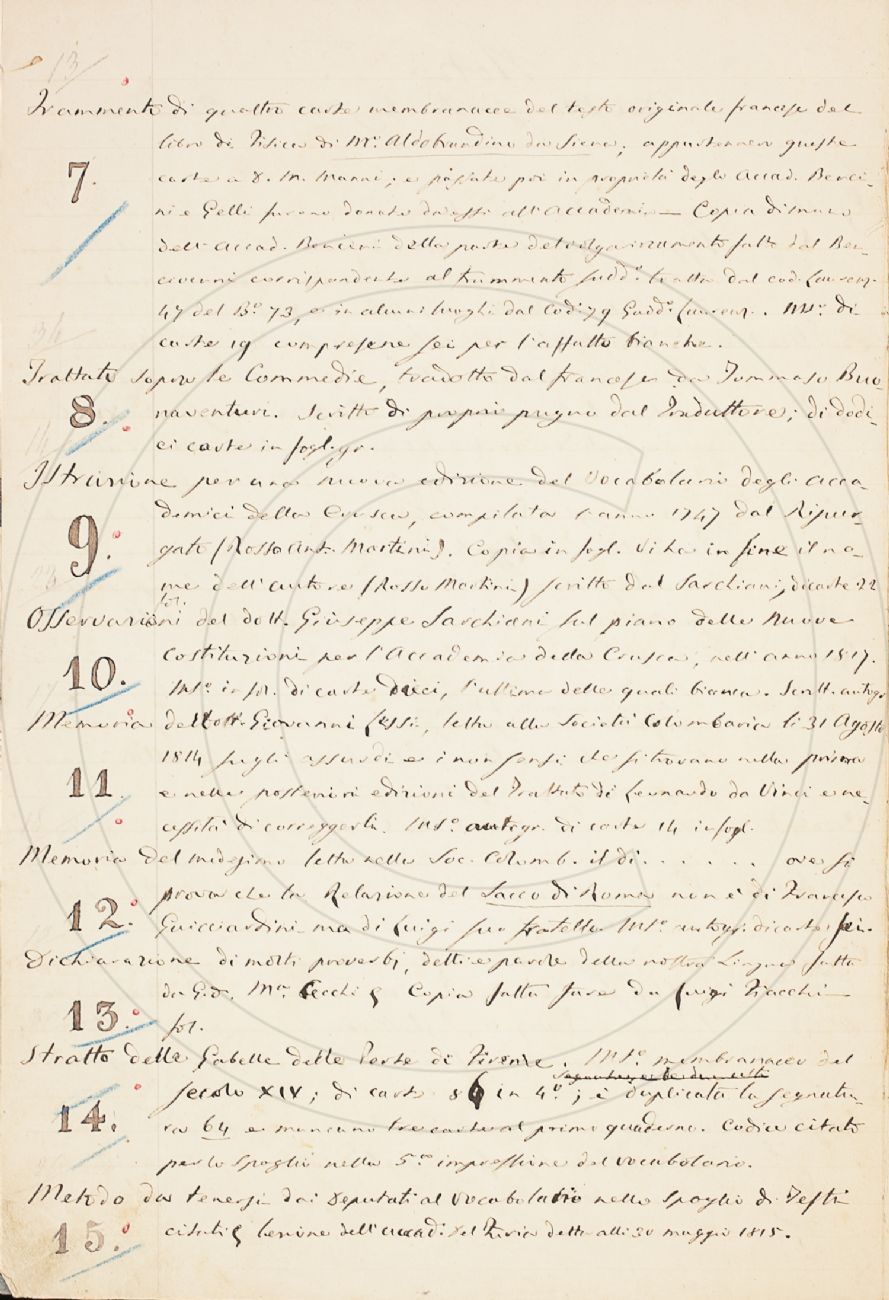 13
Frammento di quattro carte membranacee del testo originale francese del
libro di Fisica di Mº. Aldobrandino da Siena; appartennero queste
7.
carte a D. M. Manni; e passate poi in proprietà degli Accad. Benci-
ni e Gelli furono donate da essi all'Accademia — Copia di mano
dell'Accad. Bencini della parte del volgarizzamento fatto dal Ben-
civenni corrispondente al frammento sudd.º tratta dal cod. Laurenz.
47 del B.º 73, e in alcuni luoghi dal Cod. 79 Gadd.º Laurenz. . MS.º di
carte 19 compresene sei per l'affatto bianche.
Trattato sopra le Commedie, tradotto dal francese da Tommaso Buo-
8.
naventuri. Scritto di proprio pugno dal Traduttore; di dodi-
ci carte in fogl. gr.
Istruzione per una nuova edizione del Vocabolario degli Acca-
demici della Crusca, compilata l'anno 1747 dal Ripur-
9.
gato (Rosso Ant. Martini). Copia in fogl. Vi ha in fine il no-
me dell'autore (Rosso Martini) scritto dal Sarchiani, di carte 22
fol.
Osservazioni del dott. Giuseppe Sarchiani sul piano delle Nuove
10.
Costituzioni per l'Accademia della Crusca, nell'anno 1817.
MS.º in fol. di carte Dieci, l'ultima delle quali bianca. Scritt. autogr.
Memoria del Dott. Giovanni Lessi, letta alla Società Colombaria li 31 Agosto
1814 sugli assurdi e i non sensi che si trovano nella prima
11.
e nelle posteriori edizioni del Trattato di Leonardo da Vinci e ne-
cessità di correggerli. MS.º autogr. di carte 14 in fogl.
Memoria del medesimo letta nella Soc. Columb. il dì . . . . . . ove si
prova che la Relazione del Sacco di Roma non è di Francesco
12.
Guicciardini ma di Luigi suo fratello MS.º autogr. di carte sei.
Dichiarazione di molti proverbj, detti e parole della nostra Lingua fatta
da G. M.ª Cecchi Copia fatta fare da Luigi Fiacchi
13.
fol.
Stratto delle Gabelle delle Porte di Firenze. MS.º membranaceo del
secolo XIV; di carte 86 in 4.º; è duplicata la segnatu-
14.
ra 64 e mancano tre carte al primo quaderno. Codice citato
per lo Spoglio nella 5.ª impressione del Vocabolario.
Metodo da tenersi dai Deputati al Vocabolario nello Spoglio di Testi
15.
citati Lezione dell'Accad. Del Furia detta alli 30 maggio 1815.